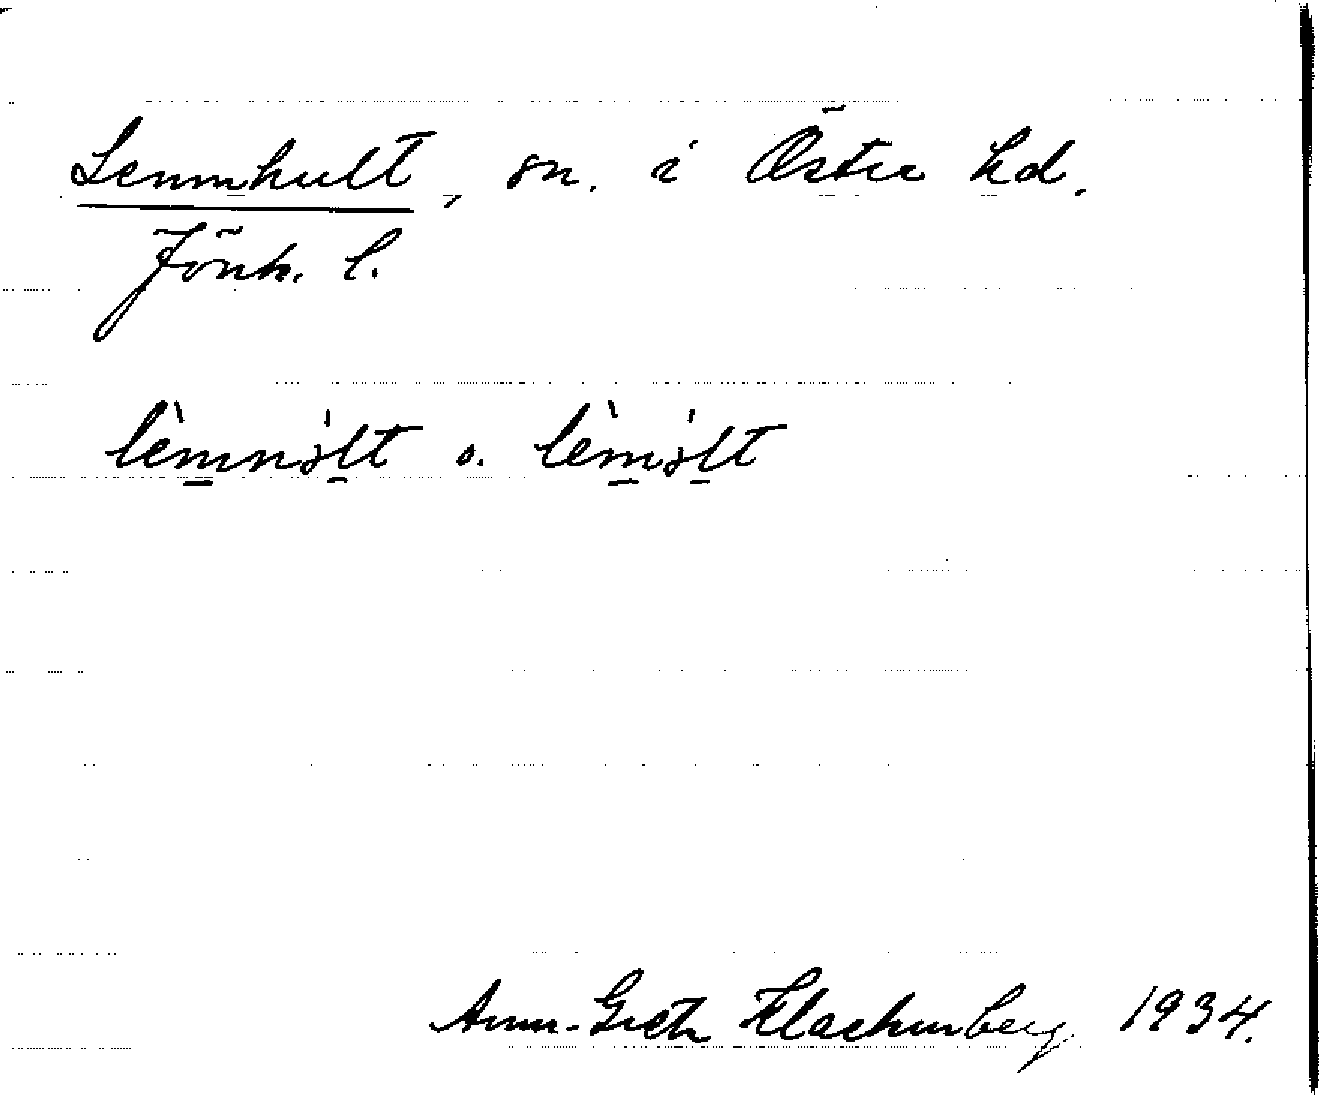 Lemnhult, sn. i Östra hd.
Jönk. l.
lèmnòlt o. lèmòlt
Anna-Greta Klackenberg 1934.